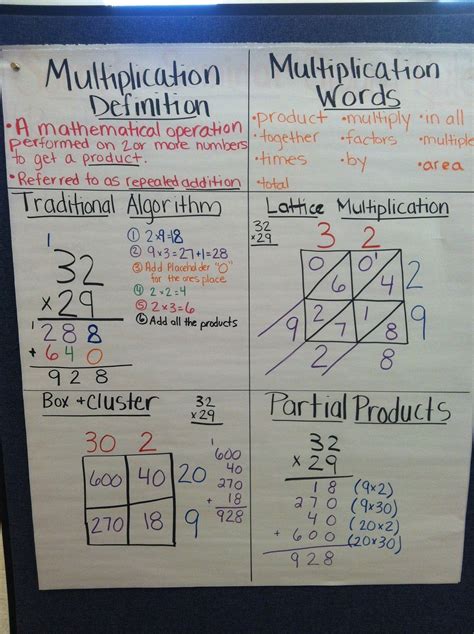 Multiplication
Definition
• A mathematical operation
performed on 2 or more numbers
to get a product.
• Referred to as repeated addition
Multiplication
Words
• product • multiply • in all
• together • factors • multiple
• times • by • area
• total
Traditional Algorithm
1
32
x 29
1
288
+ 640
928
① 2x9=18
② 9x3=27+1=28
③ Add Placeholder "0"
for the ones place
④ 2x2=4
⑤ 2x3=6
⑥ Add all the products
Lattice Multiplication
32
x29
3 2
0 6 0 1 4 2
9 2 7 1 8 9
2 8
Box + Cluster
32
x29
30 2
600 40 20
270 18 9
1
600
40
270
+ 18
928
Partial Products
32
x 29
18 (9x2)
270 (9x30)
40 (20x2)
+ 600 (20x30)
928